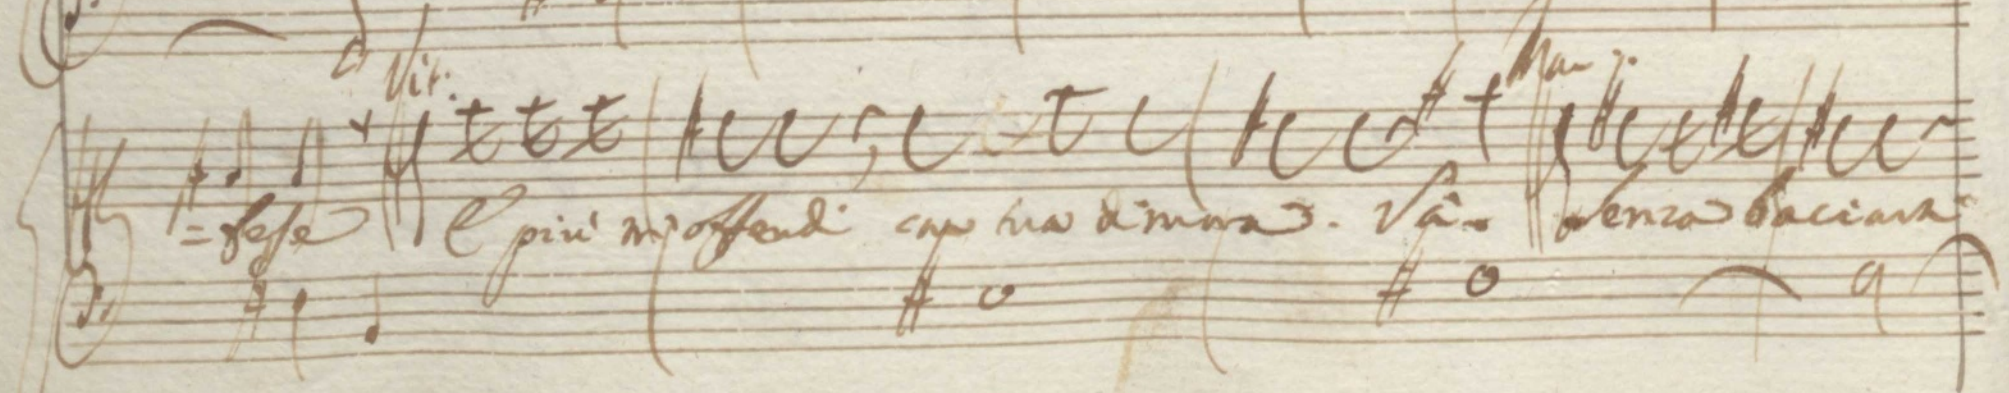 Vit: Mar:
=fese E più m'offendi con tua dimora. Và. Senza baciar